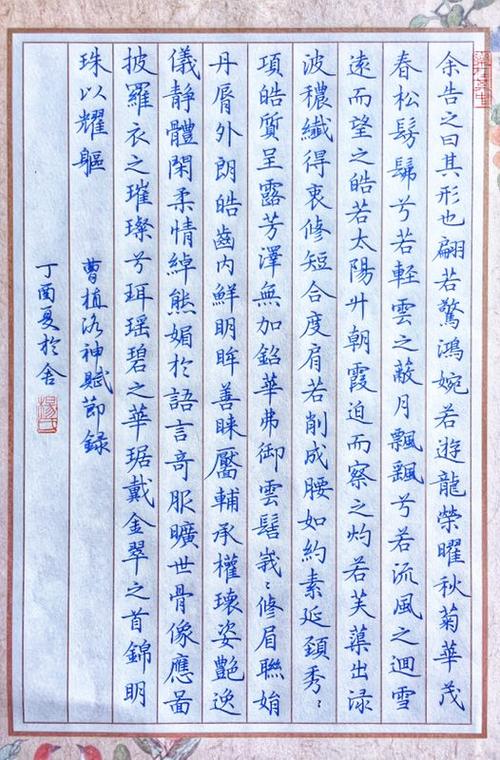 余告之曰其形也翩若驚鴻婉若遊龍榮曜秋菊華茂
春松髣髴兮若輕雲之蔽月飄飖兮若流風之迴雪
遠而望之皓若太陽升朝霞迫而察之灼若芙蕖出淥
波穠纖得衷修短合度肩若削成腰如約素延頸秀〻
項皓質呈露芳澤無加鉛華弗御雲髻峩〻修眉聯娟
丹脣外朗皓齒內鮮明眸善睞靨輔承權瓌姿艷逸
儀靜體閑柔情綽態媚於語言奇服曠世骨像應圖
披羅衣之璀璨兮珥瑤碧之華琚戴金翠之首錦明
珠以耀軀
曹植洛神賦節錄
丁酉夏於舍